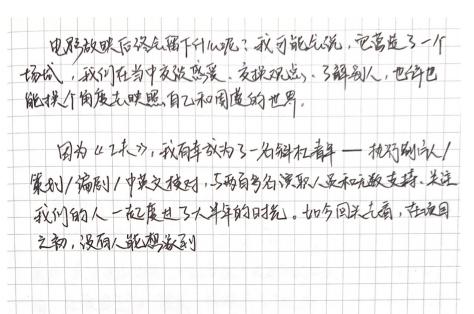 电影放映后终会留下什么呢？我可能会说，它营造了一个
场域，我们在当中交流感受、交换观点、了解别人，也许也
能换个角度去映照自己和周遭的世界。
因为《工夫》，我有幸成为了一名斜杠青年——执行制片人/
策划/编剧/中英文校对，与两百多名演职人员和无数支持、关注
我们的人一起度过了大半年的时光。如今回头去看，在项目
之初，没有人能想象到